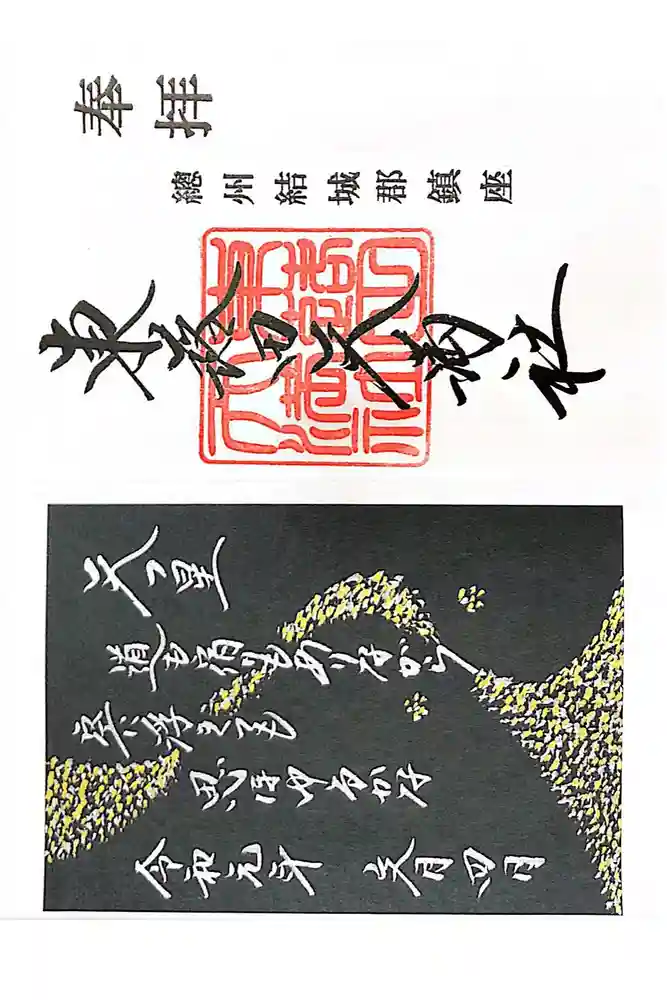 奉拝
總州結城郡鎮座
東蕗田天満社
天つ星
道も宿りもありながら
空に浮きても
思ほゆるかな
令和元年 文月四日